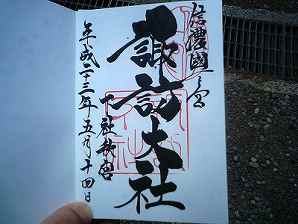 信濃國一之宮
諏訪大社
下社秋宮
平成二十三年五月十四日